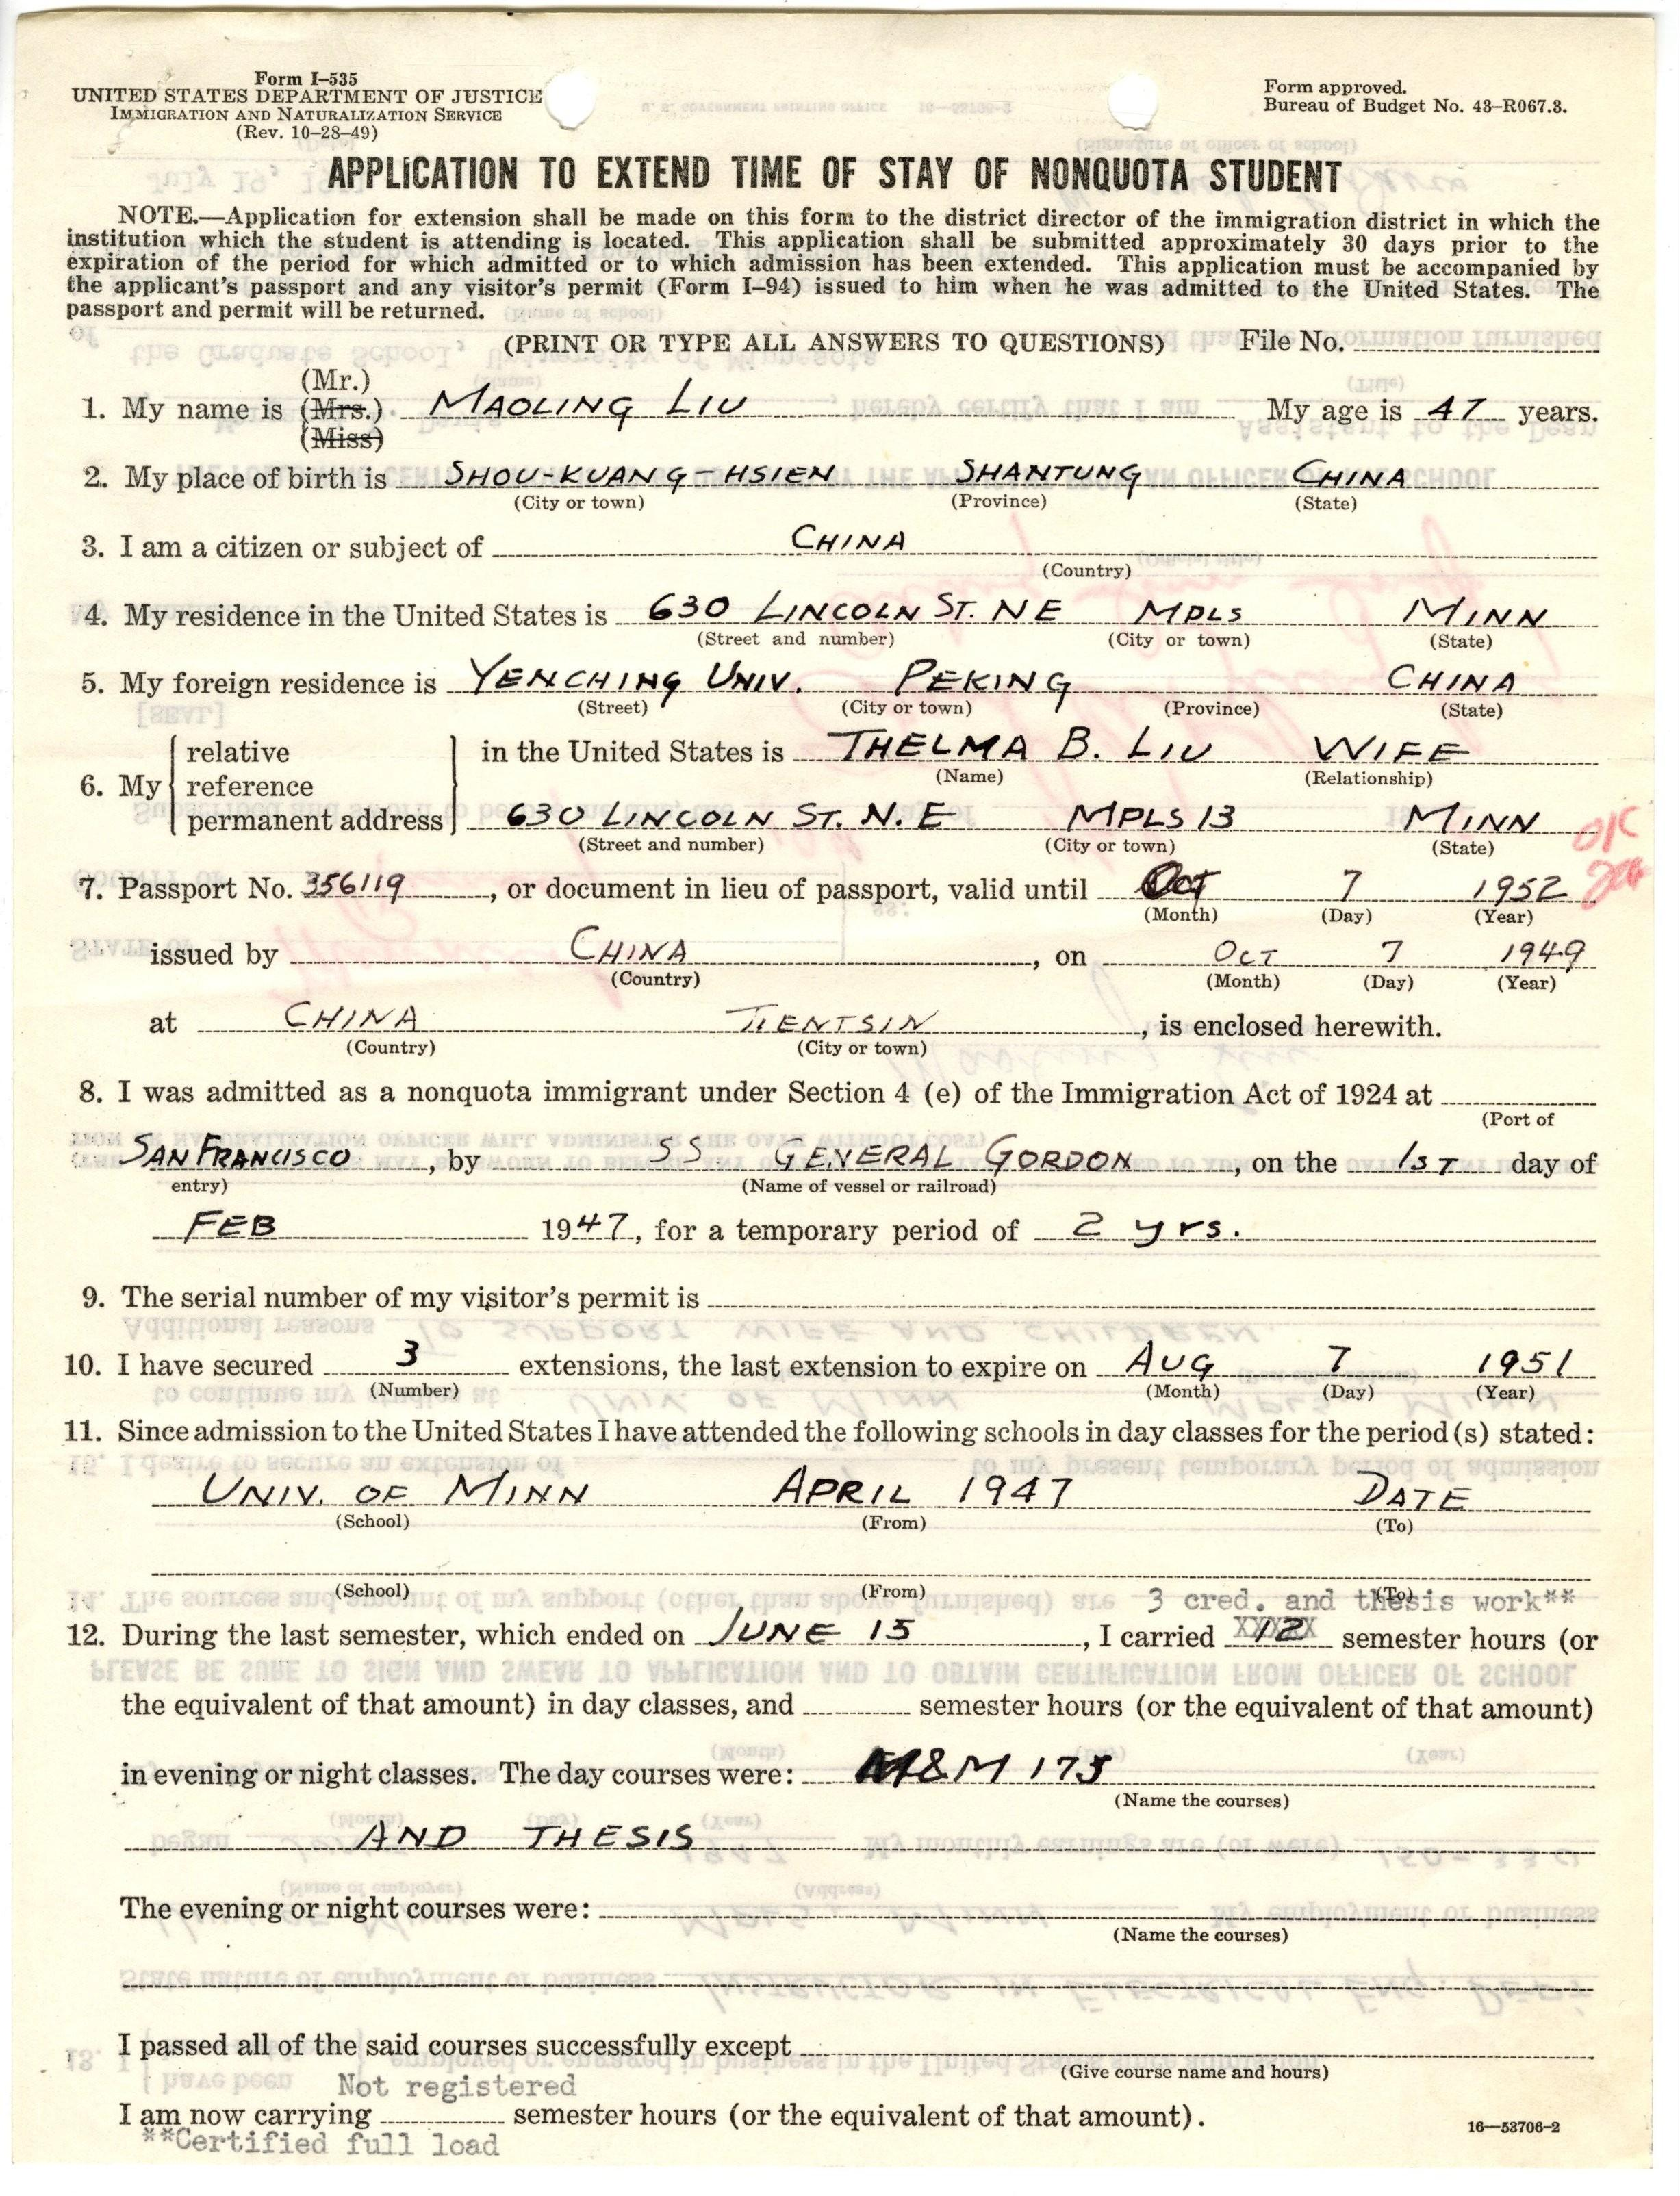 Form I-535
UNITED STATES DEPARTMENT OF JUSTICE
IMMIGRATION AND NATURALIZATION SERVICE
(Rev. 10-28-49)
Form approved.
Bureau of Budget No. 43-R067.3.
APPLICATION TO EXTEND TIME OF STAY OF NONQUOTA STUDENT
NOTE.—Application for extension shall be made on this form to the district director of the immigration district in which the
institution which the student is attending is located. This application shall be submitted approximately 30 days prior to the
expiration of the period for which admitted or to which admission has been extended. This application must be accompanied by
the applicant's passport and any visitor's permit (Form I-94) issued to him when he was admitted to the United States. The
passport and permit will be returned.
(PRINT OR TYPE ALL ANSWERS TO QUESTIONS) File No.
(Mr.)
1. My name is (Mrs.) MAOLING LIU My age is 47 years.
(Miss)
2. My place of birth is SHOU-KUANG-HSIEN SHANTUNG CHINA
(City or town) (Province) (State)
3. I am a citizen or subject of CHINA
(Country)
4. My residence in the United States is 630 LINCOLN ST. NE MPLS MINN
(Street and number) (City or town) (State)
5. My foreign residence is YENCHING UNIV. PEKING CHINA
(Street) (City or town) (Province) (State)
relative in the United States is THELMA B. LIU WIFE
(Name) (Relationship)
6. My reference
permanent address 630 LINCOLN ST. N.E MPLS 13 MINN
(Street and number) (City or town) (State)
OK
7. Passport No. 356119, or document in lieu of passport, valid until Oct 7 1952
(Month) (Day) (Year)
issued by CHINA, on OCT 7 1949
(Country) (Month) (Day) (Year)
at CHINA TIENTSIN, is enclosed herewith.
(Country) (City or town)
8. I was admitted as a nonquota immigrant under Section 4 (e) of the Immigration Act of 1924 at
(Port of
SAN FRANCISCO, by SS GENERAL GORDON, on the 1ST day of
entry) (Name of vessel or railroad)
FEB 1947, for a temporary period of 2 yrs.
9. The serial number of my visitor's permit is
10. I have secured 3 extensions, the last extension to expire on AUG 7 1951
(Number) (Month) (Day) (Year)
11. Since admission to the United States I have attended the following schools in day classes for the period(s) stated:
UNIV. OF MINN APRIL 1947 DATE
(School) (From) (To)
(School) (From) (To)
3 cred. and thesis work**
12. During the last semester, which ended on JUNE 15, I carried 12 semester hours (or
the equivalent of that amount) in day classes, and semester hours (or the equivalent of that amount)
in evening or night classes. The day courses were: M&M 175
(Name the courses)
AND THESIS
The evening or night courses were:
(Name the courses)
I passed all of the said courses successfully except
(Give course name and hours)
Not registered
I am now carrying semester hours (or the equivalent of that amount).
**Certified full load
16-53706-2